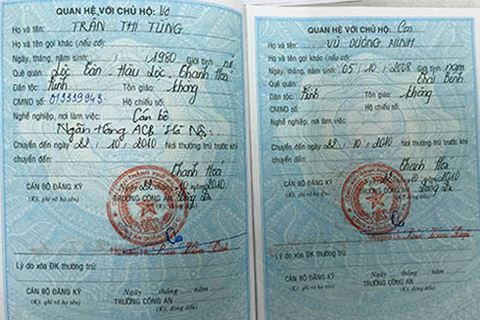 QUAN HỆ VỚI CHỦ HỘ: Vợ
Họ và tên: TRẦN THỊ TÙNG
Họ và tên gọi khác (nếu có):
Ngày, tháng, năm sinh: / / 1980 Giới tính: nữ
Quê quán: Lộc Hậu Lộc Thanh Hoá
Dân tộc: Kinh Tôn giáo: không
CMND số: 013339943 Hộ chiếu số:
Nghề nghiệp, nơi làm việc: Cán bộ
Ngân hàng ACB Hà Nội
Chuyển đến ngày 22 / 10 / 2010 Nơi thường trú trước khi
chuyển đến: Thanh Hoá
Ngày 22 tháng 10 năm 2010
CÁN BỘ ĐĂNG KÝ
(Ký, ghi rõ họ tên)
TRƯỞNG CÔNG AN
Lý do xóa ĐK thường trú:
Ngày tháng năm
CÁN BỘ ĐĂNG KÝ
(Ký, ghi rõ họ tên)
TRƯỞNG CÔNG AN
(Ký, đóng dấu)
QUAN HỆ VỚI CHỦ HỘ: Con
Họ và tên: VŨ DƯƠNG MINH
Họ và tên gọi khác (nếu có):
Ngày, tháng, năm sinh: 05 / 10 / 2008 Giới tính: nam
Quê quán: Thái Bình
Dân tộc: Kinh Tôn giáo: không
CMND số: Hộ chiếu số:
Nghề nghiệp, nơi làm việc:
Chuyển đến ngày 22 / 10 / 2010 Nơi thường trú trước khi
chuyển đến: Thanh Hoá
CÁN BỘ ĐĂNG KÝ
(Ký, ghi rõ họ tên)
TRƯỞNG CÔNG AN
(Ký, đóng dấu)
Lý do xóa ĐK thường trú:
Ngày tháng năm
CÁN BỘ ĐĂNG KÝ
(Ký, ghi rõ họ tên)
TRƯỞNG CÔNG AN
(Ký, đóng dấu)